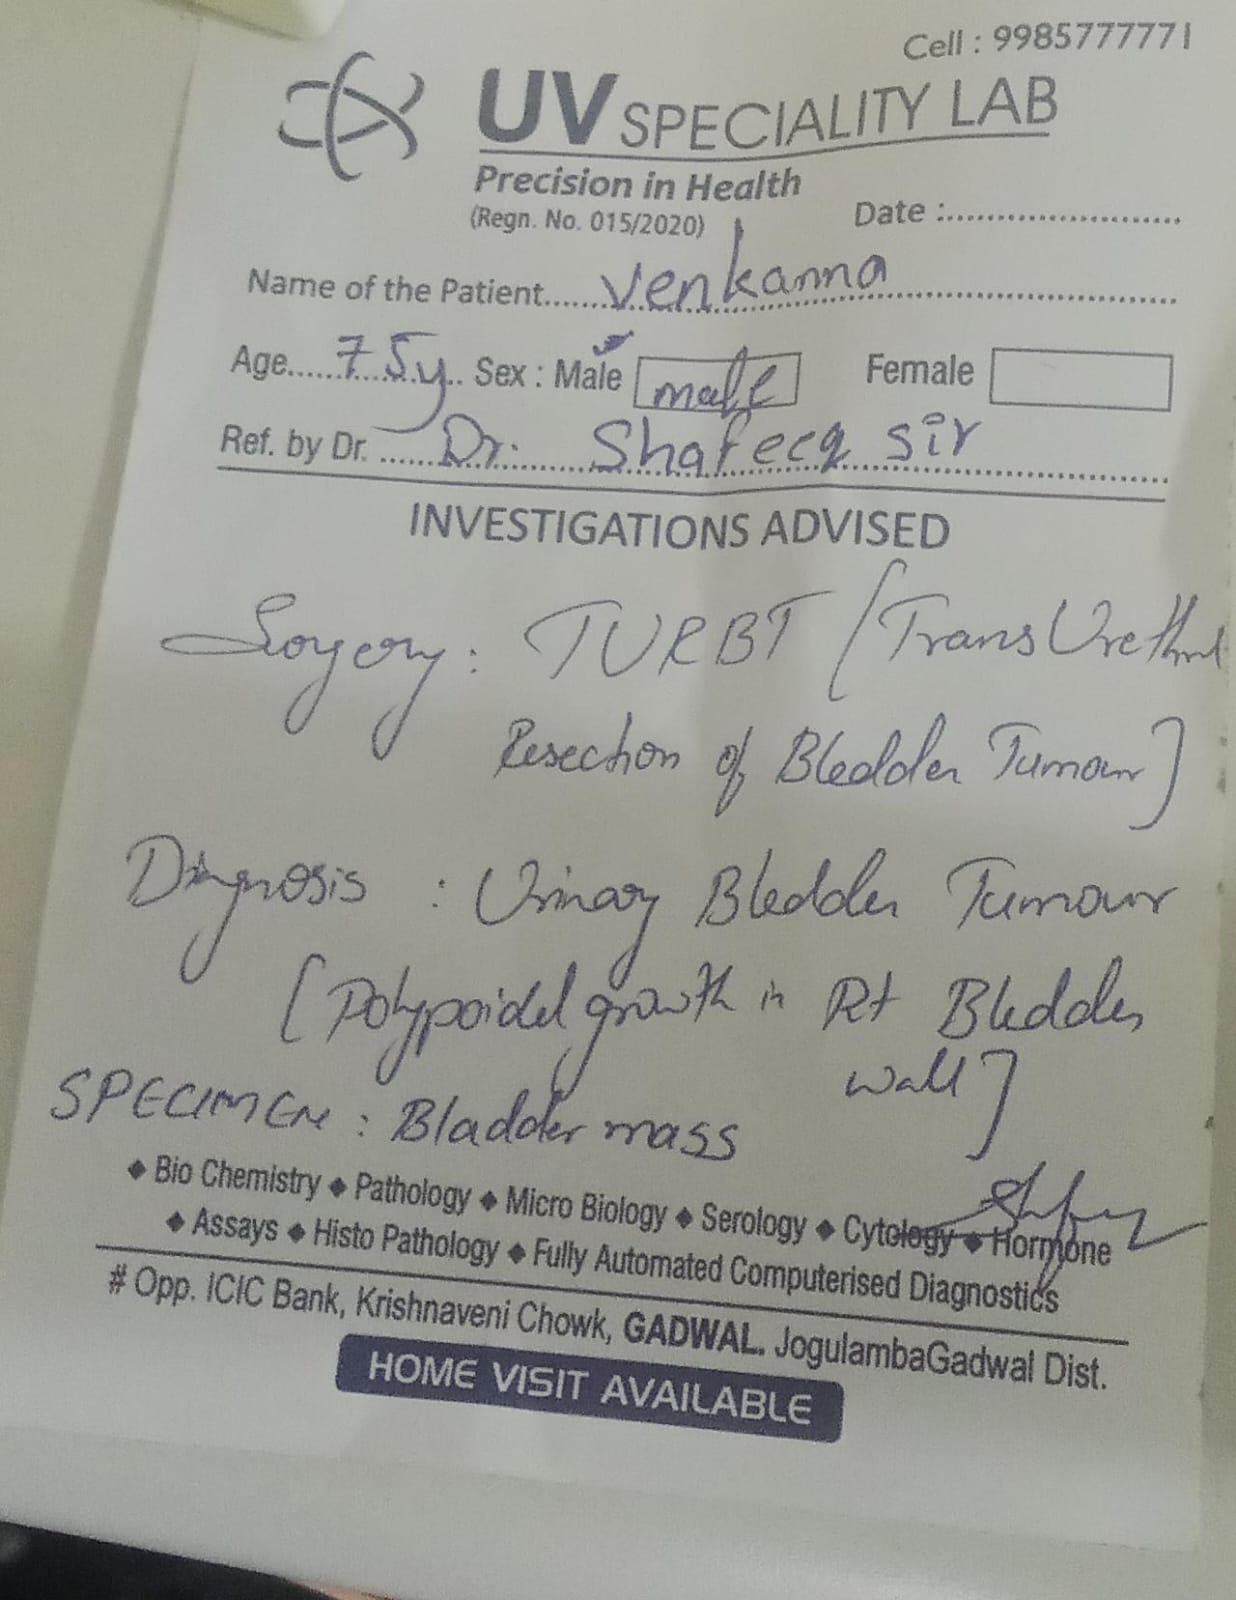 Cell : 9985777771
UV SPECIALITY LAB
Precision in Health
(Regn. No. 015/2020)
Date :
Name of the Patient Venkanna
Age 75y Sex : Male male Female
Ref. by Dr. Dr. Shafeeq sir
INVESTIGATIONS ADVISED
Surgery : TURBT [TransUrethral
Resection of Bladder Tumour]
Diagnosis : Urinary Bladder Tumour
[Polypoidal growth in Rt Bladder
wall]
SPECIMEN : Bladder mass
◆ Bio Chemistry ◆ Pathology ◆ Micro Biology ◆ Serology ◆ Cytology ◆ Hormone
◆ Assays ◆ Histo Pathology ◆ Fully Automated Computerised Diagnostics
# Opp. ICIC Bank, Krishnaveni Chowk, GADWAL. JogulambaGadwal Dist.
HOME VISIT AVAILABLE